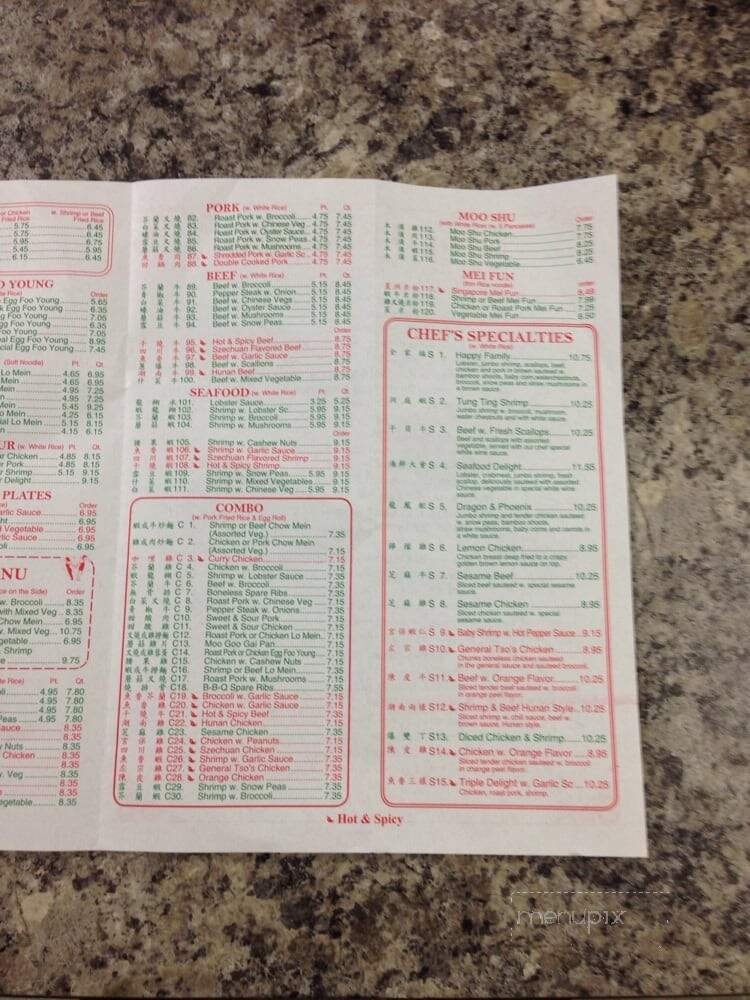 or Chicken w. Shrimp or Beef
Fried Rice Fried Rice
5.75 6.45
5.45 5.95
6.15 6.45
O YOUNG
Order
Egg Foo Young 5.65
Egg Foo Young 6.35
Egg Foo Young 7.05
Egg Foo Young 6.35
Foo Young 7.05
Egg Foo Young 8.95
Egg Foo Young 7.45
(Soft Noodle) Pt. Qt.
Lo Mein 4.65 6.95
Mein 4.65 6.95
(w. White Rice) Pt. Qt.
Chicken 4.85 8.15
Pork 4.85 8.15
Shrimp 5.15 9.15
Delight 9.15
PLATES
Order
Garlic Sauce 6.95
Vegetable 6.95
NU
w. Broccoli 8.35
with Mixed Veg 8.35
Chow Mein 6.95
w. Mixed Veg 10.75
Vegetable 6.95
w. Shrimp
9.75
PORK (w. White Rice) Pt. Qt.
芥蘭叉燒 82. Roast Pork w. Broccoli 4.75 7.45
白菜叉燒 83. Roast Pork w. Chinese Veg 4.75 7.45
蠔油叉燒 84. Roast Pork w. Oyster Sauce 4.75 7.45
雪豆叉燒 85. Roast Pork w. Snow Peas 4.75 7.45
蘑菇叉燒 86. Roast Pork w. Mushrooms 4.75 7.45
魚香肉 87. Shredded Pork w. Garlic Sc 4.75 7.45
回鍋肉 88. Double Cooked Pork 4.75 7.45
BEEF (w. White Rice) Pt. Qt.
芥蘭牛 89. Beef w. Broccoli 5.15 8.45
青椒牛 90. Pepper Steak w. Onion 5.15 8.45
白菜牛 91. Beef w. Chinese Vegs 5.15 8.45
蠔油牛 92. Beef w. Oyster Sauce 5.15 8.45
蘑菇牛 93. Beef w. Mushrooms 5.15 8.45
雪豆牛 94. Beef w. Snow Peas 5.15 8.45
Order
干燒牛 95. Hot & Spicy Beef 8.75
四川牛 96. Szechuan Flavored Beef 8.75
魚香牛 97. Beef w. Garlic Sauce 8.75
蔥爆牛 98. Beef w. Scallions 8.75
湖南牛 99. Hunan Beef 8.75
什菜牛 100. Beef w. Mixed Vegetable 8.75
SEAFOOD (w. White Rice) Pt. Qt.
龍糊水 101. Lobster Sauce 3.25 5.25
蝦龍糊 102. Shrimp w. Lobster Sc 5.95 9.15
芥蘭蝦 103. Shrimp w. Broccoli 5.95 9.15
蘑菇蝦 104. Shrimp w. Mushrooms 5.95 9.15
Order
腰果蝦 105. Shrimp w. Cashew Nuts 9.15
魚香蝦 106. Shrimp w. Garlic Sauce 9.15
四川蝦 107. Szechuan Flavored Shrimp 9.15
干燒蝦 108. Hot & Spicy Shrimp 9.15
雪豆蝦 109. Shrimp w. Snow Peas 5.95 9.15
什菜蝦 110. Shrimp w. Mixed Vegetables 9.15
白菜蝦 111. Shrimp w. Chinese Veg 5.95 9.15
COMBO
(w. Pork Fried Rice & Egg Roll)
蝦或牛炒麵 C 1. Shrimp or Beef Chow Mein
(Assorted Veg.) 7.35
雞或肉炒麵 C 2. Chicken or Pork Chow Mein
(Assorted Veg.) 7.15
咖喱雞 C 3. Curry Chicken 7.15
芥蘭雞 C 4. Chicken w. Broccoli 7.15
蝦龍糊 C 5. Shrimp w. Lobster Sauce 7.35
芥蘭牛 C 6. Beef w. Broccoli 7.35
無骨排 C 7. Boneless Spare Ribs 7.35
白菜叉燒 C 8. Roast Pork w. Chinese Veg 7.15
青椒牛 C 9. Pepper Steak w. Onions 7.35
甜酸肉 C10. Sweet & Sour Pork 7.15
甜酸雞 C11. Sweet & Sour Chicken 7.15
叉燒或雞撈麵 C12. Roast Pork or Chicken Lo Mein 7.15
蘑菇雞片 C13. Moo Goo Gai Pan 7.15
叉燒或雞蓉蛋 C14. Roast Pork or Chicken Egg Foo Young 7.15
腰果雞 C15. Chicken w. Cashew Nuts 7.15
蝦或牛撈麵 C16. Shrimp or Beef Lo Mein 7.35
蘑菇叉燒 C17. Roast Pork w. Mushrooms 7.15
燒排骨 C18. B-B-Q Spare Ribs 7.55
魚香芥蘭 C19. Broccoli w. Garlic Sauce 7.15
魚香雞 C20. Chicken w. Garlic Sauce 7.15
干燒牛 C21. Hot & Spicy Beef 7.35
湖南雞 C22. Hunan Chicken 7.15
芝麻雞 C23. Sesame Chicken 7.35
宮保雞 C24. Chicken w. Peanuts 7.15
四川雞 C25. Szechuan Chicken 7.15
魚香蝦 C26. Shrimp w. Garlic Sauce 7.35
左宗雞 C27. General Tso's Chicken 7.35
陳皮雞 C28. Orange Chicken 7.35
雪豆蝦 C29. Shrimp w. Snow Peas 7.35
芥蘭蝦 C30. Shrimp w. Broccoli 7.35
MOO SHU
(with White Rice or 5 Pancakes) Order
木須雞 112. Moo Shu Chicken 7.75
木須肉 113. Moo Shu Pork 7.75
木須牛 114. Moo Shu Beef 8.25
木須蝦 115. Moo Shu Shrimp 8.25
木須菜 116. Moo Shu Vegetable 6.45
MEI FUN
(thin Rice noodle) Order
星洲米粉 117. Singapore Mei Fun 8.49
蝦牛米粉 118. Shrimp or Beef Mei Fun 7.99
雞叉燒米粉 119. Chicken or Roast Pork Mei Fun 7.25
菜米粉 120. Vegetable Mei Fun 6.50
CHEF'S SPECIALTIES
(w. White Rice)
全家福 S 1. Happy Family 10.75
Lobster, jumbo shrimp, scallops, beef,
chicken and pork in brown sauteed w.
bamboo shoots, baby corn, waterchestnuts,
broccoli, snow peas and straw mushrooms in
a brown sauce.
洞庭蝦 S 2. Tung Ting Shrimp 10.25
Jumbo shrimp w. broccoli, mushroom,
water chestnuts and with white sauce.
干貝牛 S 3. Beef w. Fresh Scallops 10.25
Beef and scallops with assorted
vegetable, served with our chef special
white wine sauce.
海鮮大會 S 4. Seafood Delight 11.55
Lobster, crabmeat, jumbo shrimp, fresh
scallop, deliciously sauteed with assorted
Chinese vegetable in special white wine
sauce.
龍鳳配 S 5. Dragon & Phoenix 10.25
Jumbo shrimp and tender chicken sauteed
w. snow peas, bamboo shoots,
straw mushrooms, baby corns and carrots in
a white sauce.
檸檬雞 S 6. Lemon Chicken 8.95
Chicken breast deep fried to a crispy
golden brown lemon sauce on top.
芝麻牛 S 7. Sesame Beef 10.25
Sliced beef sauteed w. special sesame
sauce.
芝麻雞 S 8. Sesame Chicken 8.95
Sliced chicken sauteed w. special
sesame sauce.
宮保蝦仁 S 9. Baby Shrimp w. Hot Pepper Sauce 9.15
左宗雞 S10. General Tso's Chicken 8.95
Chunks boneless chicken sauteed
in the general sauce and sauteed broccoli.
陳皮牛 S11. Beef w. Orange Flavor 10.25
Sliced tender beef sauteed w. broccoli
in orange peel flavor.
湖南兩樣 S12. Shrimp & Beef Hunan Style 10.25
Sliced shrimp w. chili sauce, beef w.
brown sauce. Hunan style.
爆雙丁 S13. Diced Chicken & Shrimp 10.25
陳皮雞 S14. Chicken w. Orange Flavor 8.95
Sliced tender chicken sauteed w. broccoli
in orange peel flavor.
魚香三樣 S15. Triple Delight w. Garlic Sc 10.25
Chicken, roast pork, shrimp.
Hot & Spicy
menupix